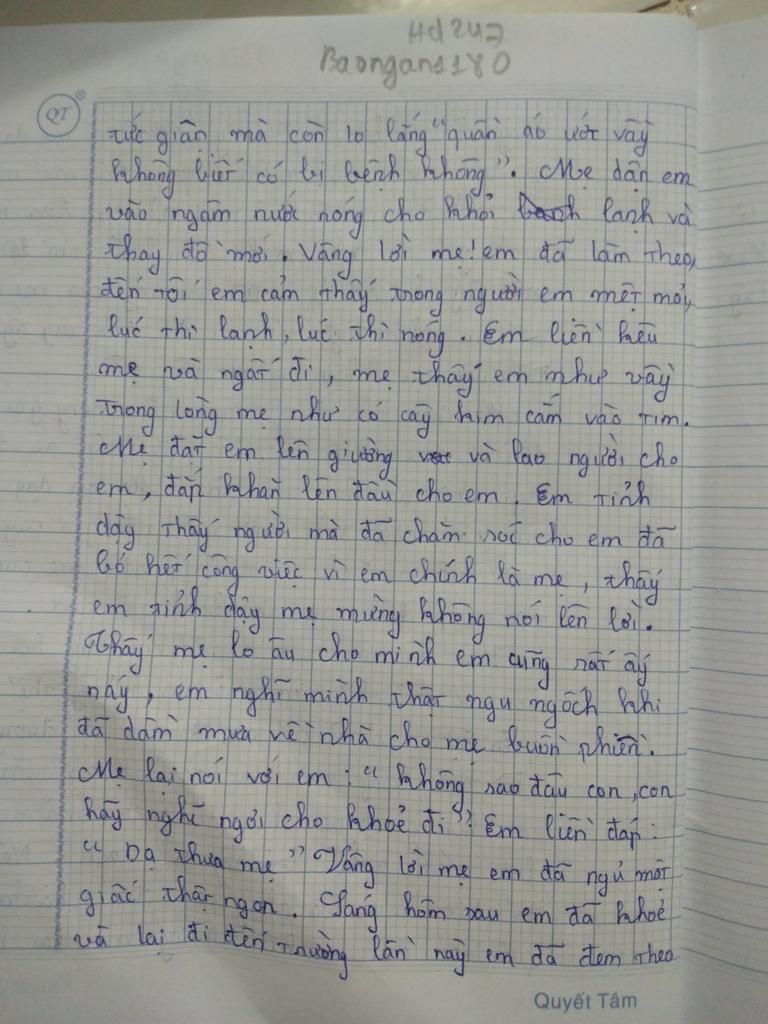 Hd247
Baongan1180
QT
tức giận mà còn lo lắng "quần áo ướt vậy
không biết có bị bệnh không". Mẹ dặn em
vào ngâm nước nóng cho khỏi lạnh và
thay đồ mới. Vâng lời mẹ! em đã làm theo,
đến tối em cảm thấy trong người em mệt mỏi,
lúc thì lạnh, lúc thì nóng. Em liền kêu
mẹ và ngất đi, mẹ thấy em như vậy
trong lòng mẹ như có cây kim cắm vào tim.
Mẹ đặt em lên giường và lao người cho
em, đắp khăn lên đầu cho em. Em tỉnh
dậy thấy người mà đã chăm soc cho em đã
bỏ hết công việc vì em chính là mẹ, thấy
em tỉnh dậy mẹ mừng không nói lên lời.
Thấy mẹ lo âu cho mình em cũng rất ấy
náy, em nghĩ mình thật ngu ngốch khi
đã dầm mưa về nhà cho mẹ buồn phiền.
Mẹ lại nói với em : " không sao đâu con, con
hãy nghĩ ngơi cho khoẻ đi" Em liền đáp :
" Dạ thưa mẹ " Vâng lời mẹ em đã ngủ một
giấc thật ngon. Sáng hôm sau em đã khoẻ
và lại đi đến trường lần này em đã đem theo
Quyết Tâm